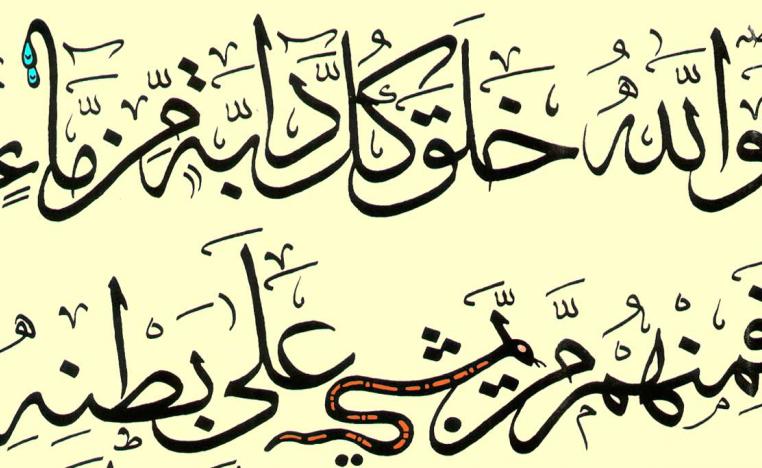 وَاللَّهُ خَلَقَ كُلَّ دَابَّةٍ مِّن مَّاءٍ
فَمِنْهُم مَّن يَمْشِي عَلَى بَطْنِهِ